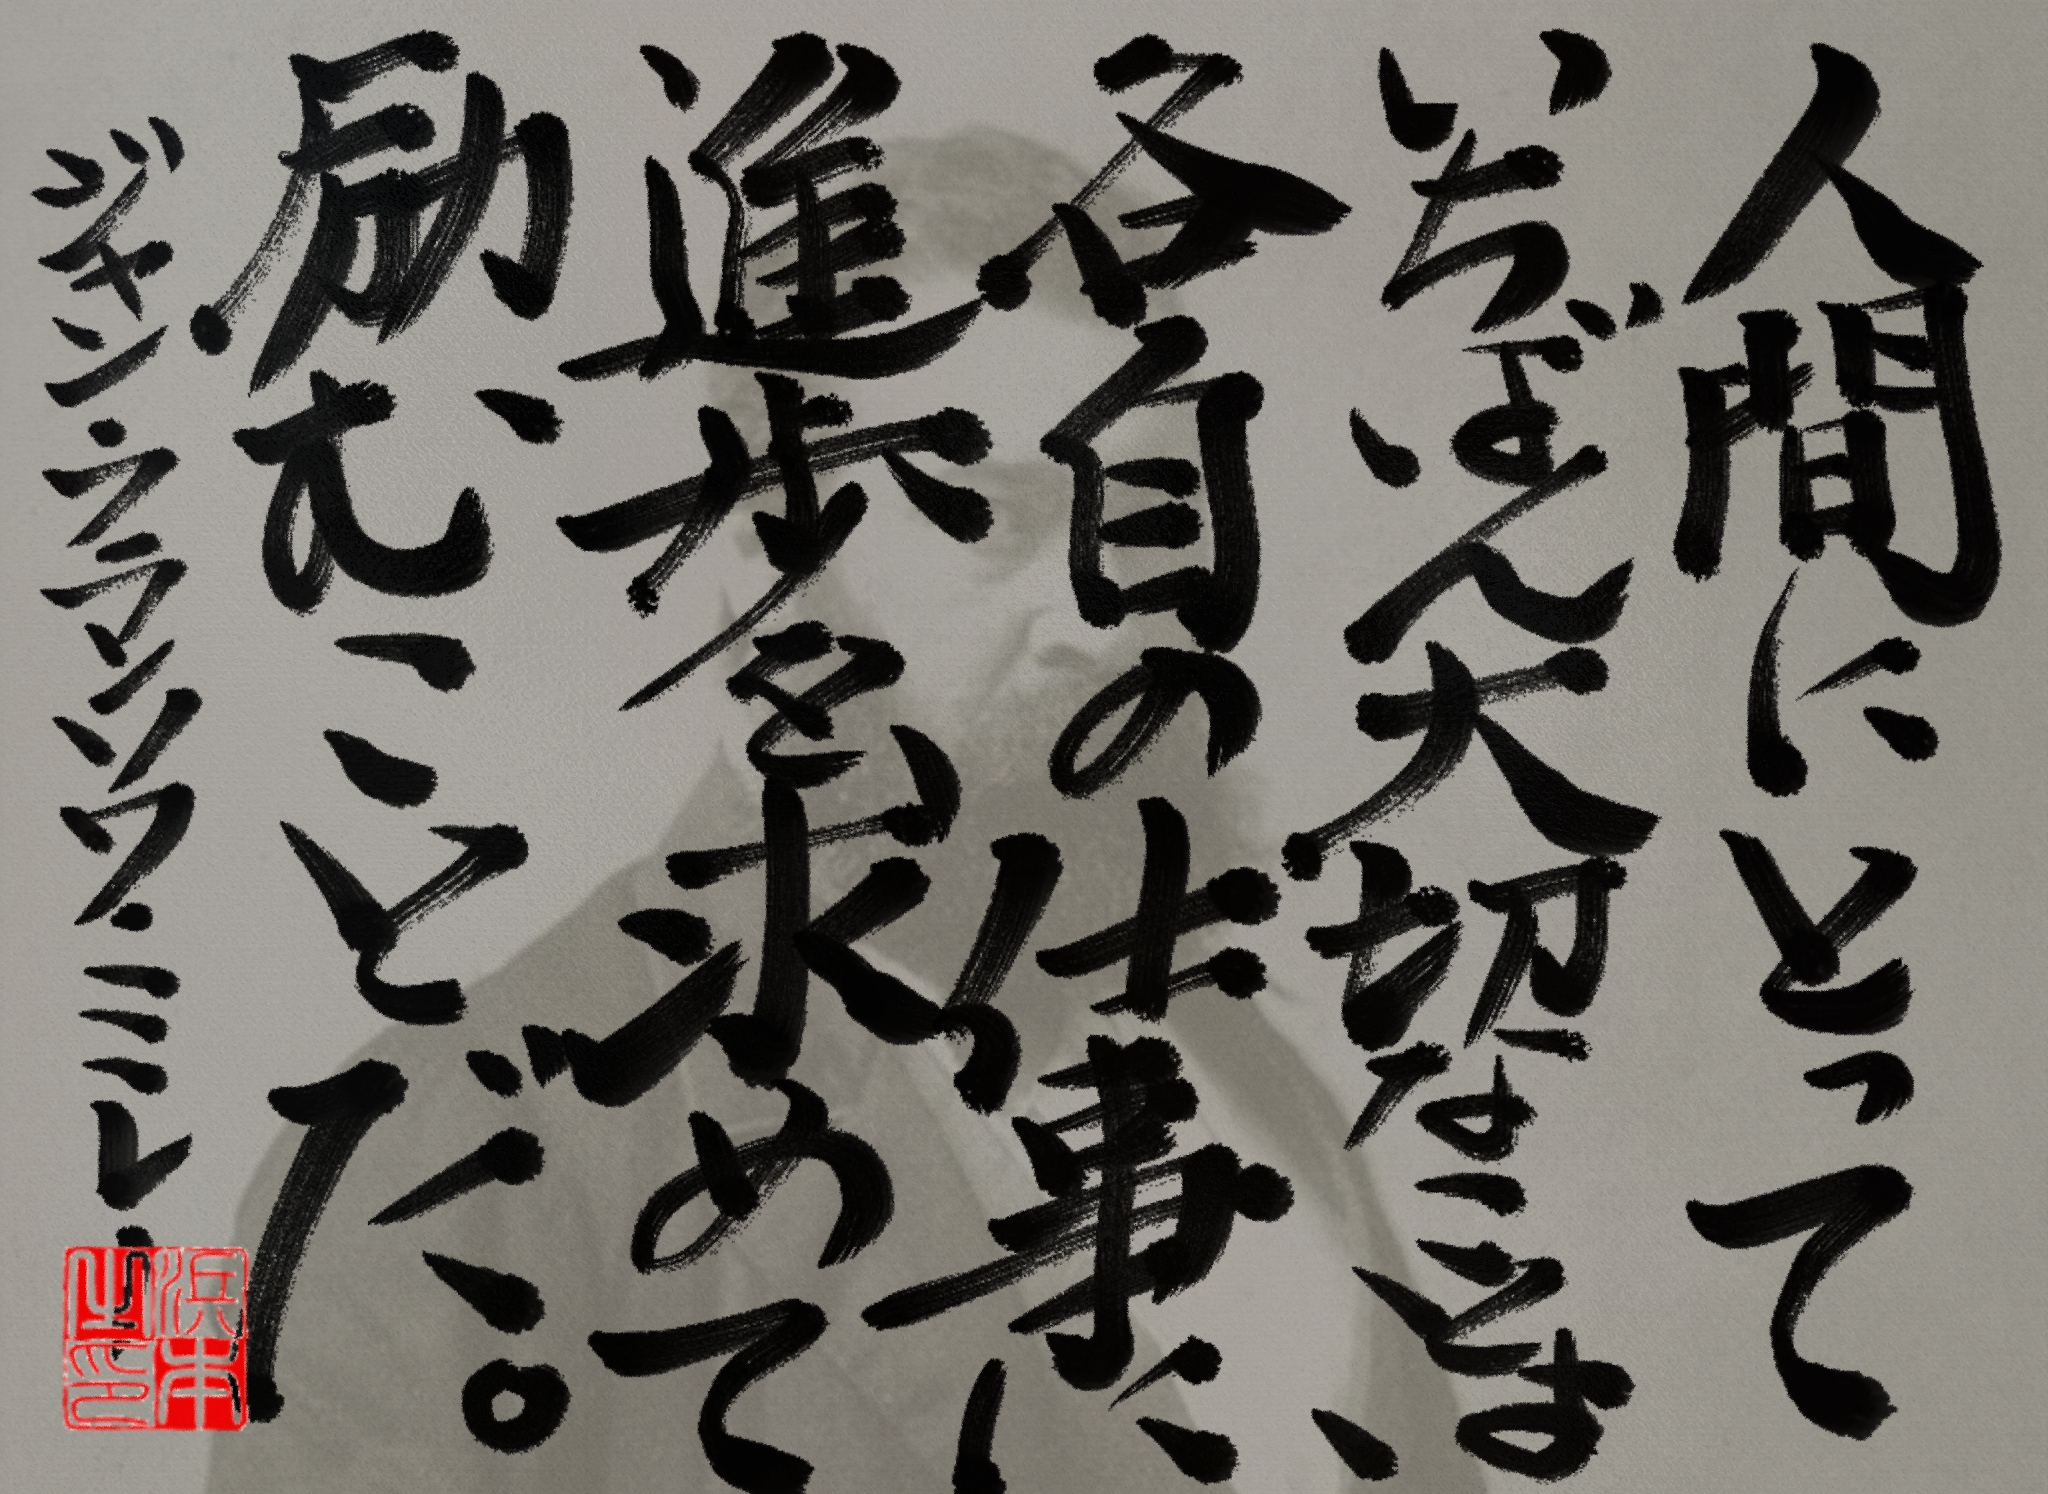 人間にとって
いちばん大切なことは
各自の仕事に
進歩を求めて
励むことだ。
ジャン・フランソワ・ミレー
浜本之印